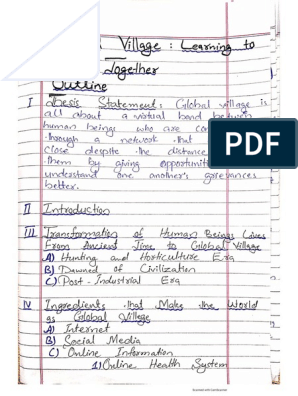 Village : Learning to
Together
Outline
I Thesis Statement : Global village is
all about a virtual band between
human beings who are con
through a network that
close despite the distance
them by giving opportuniti
understand one another's grievances
better.
II Introduction
III Transformation of Human Beings Lives
From Ancient Time to Global Village
A) Hunting and Horticulture Era
B) Dawned of Civilization
C) Post-Industrial Era
IV Ingredients that Make the World
as Global Village
A) Internet
B) Social Media
C) Online Information
1) Online Health System
PDF
Scanned with CamScanner